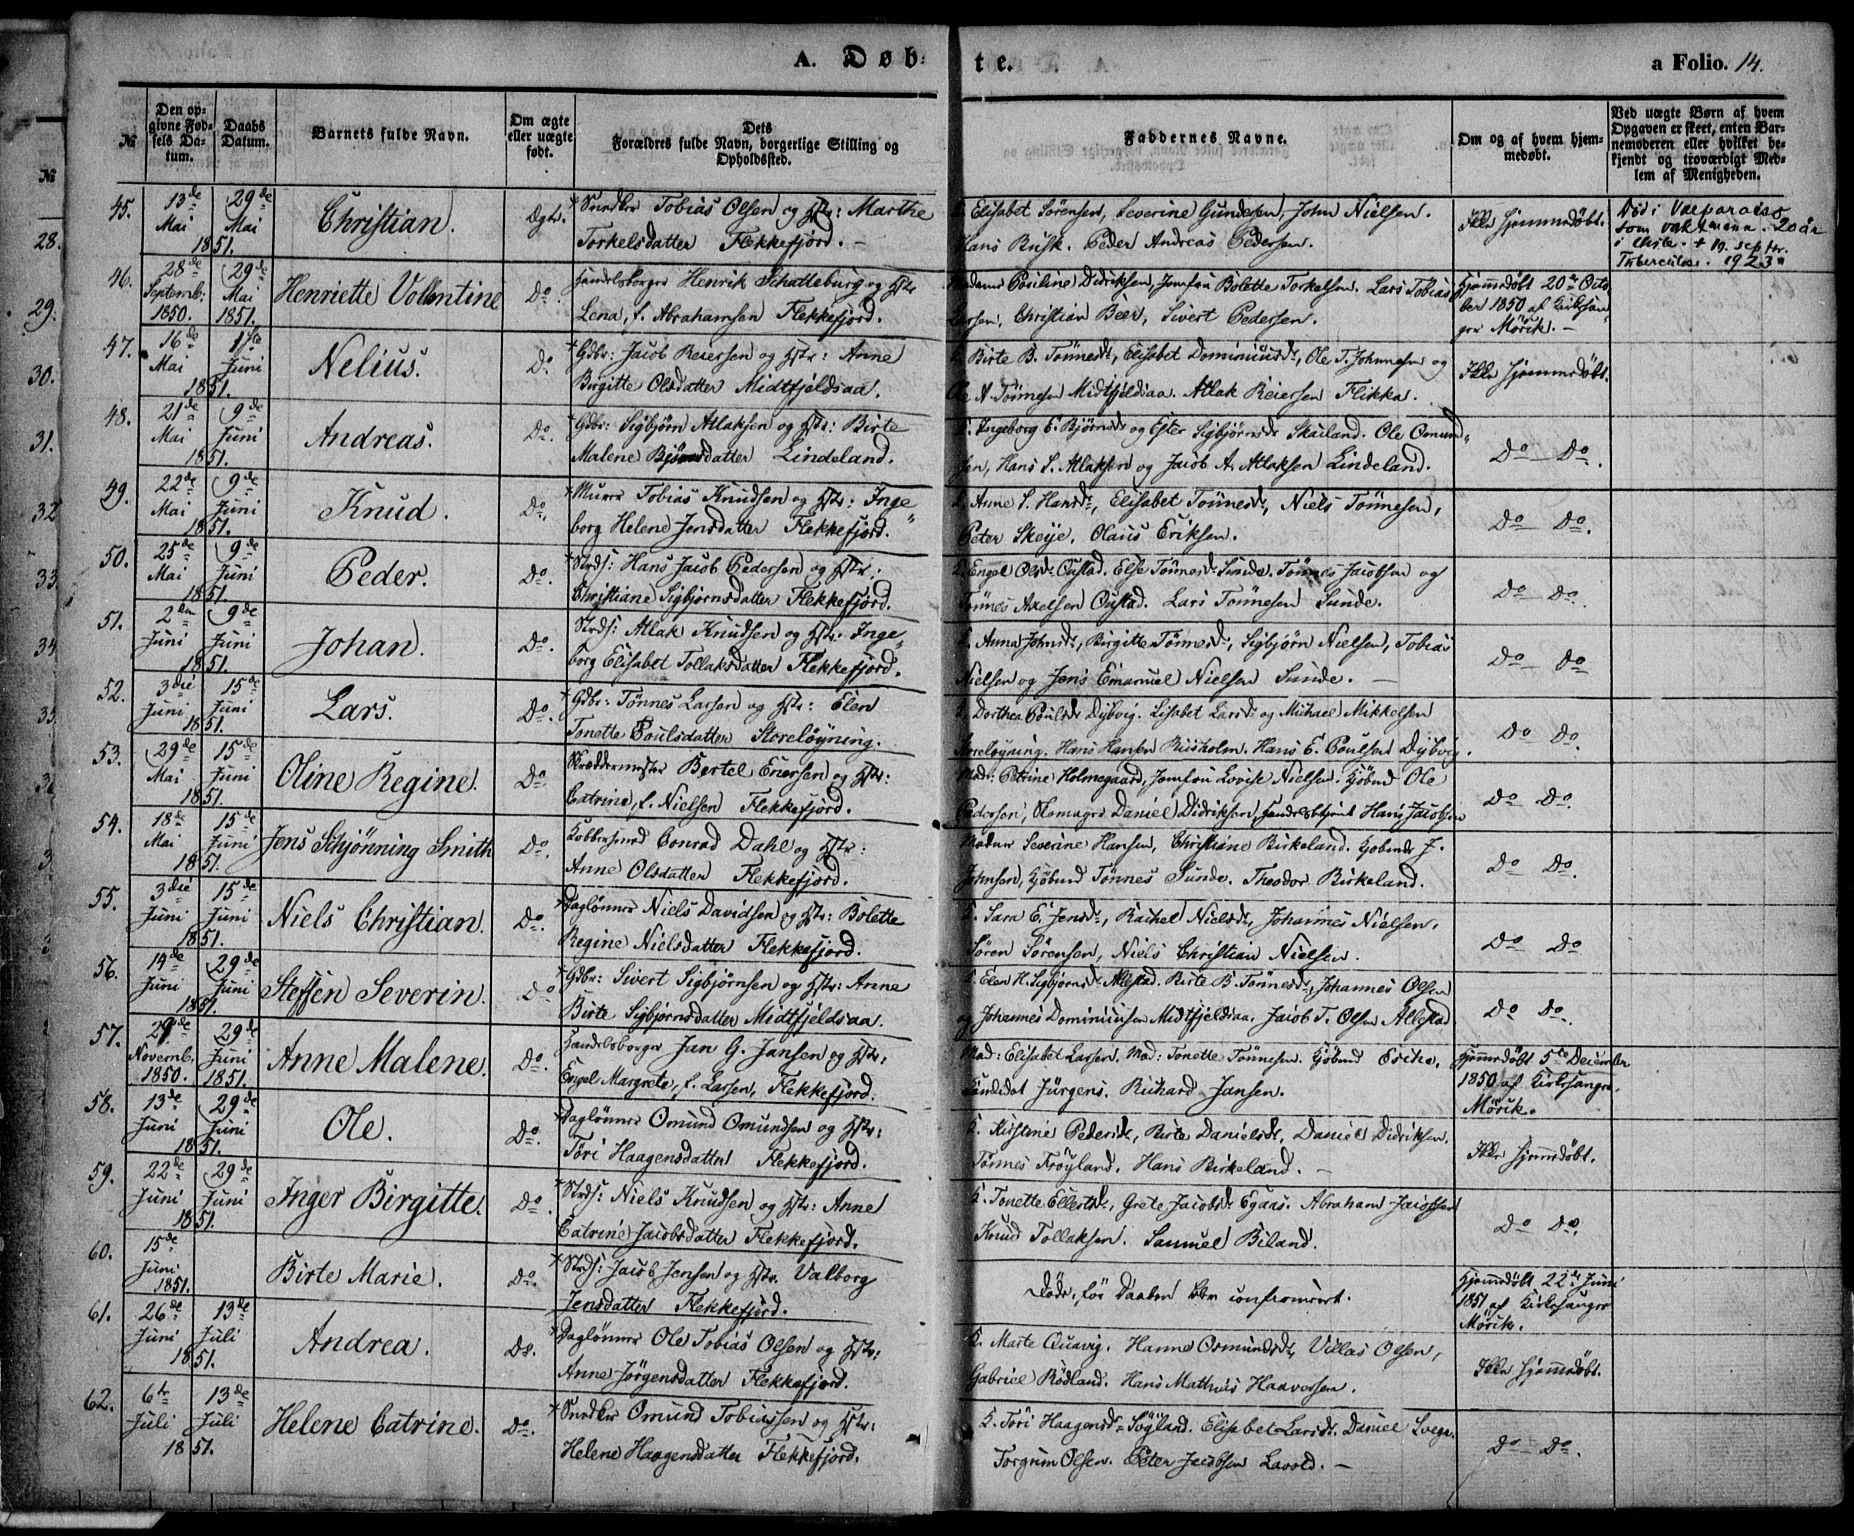 A. Døb:te.
a Folio. 14.
№
Den opgivne Fødsels Datum.
Daabs Datum.
Barnets fulde Navn.
Om ægte eller uægte født.
Dets Forældres fulde Navn, borgerlige Stilling og Opholdssted.
Faddernes Navne.
Om og af hvem hjemmedøbt.
Ved uægte Børn af hvem Opgaven er skeet, enten Barnemoderen eller hvilket bekjendt og troværdigt Medlem af Menigheden.
45. 13de Mai 29de Mai 1851. Christian. Ægt. Snedker Tobias Olsen og Hstr: Marthe
Torkelsdatter Flekkefjord. –
K. Elisabet Sørensen, Severine Gundesen, John Nielsen.
Hans Busk. Peder Andreas Pedersen.
Ikke hjemmedøbt.
Død i Valparaiso
som vaktmann. 20 år
i Chile. + 19. septbr.
Tuberculose. 1923.
46. 28de Septemb: 1850. 29de Mai 1851. Henriette Vollentine Do. Handelsborger Henrik Schatteburg og Hstr
Lena, f. Abrahamsen Flekkefjord.
Madame Didriksen, Jomfru Bolette Torkelsen. Lars Tobias
Larsen, Christian Beer, Sivert Pedersen.
Hjemmdøbt 20de Octo
ber 1850 af Kirkesan
ger Mörik. –
47. 16de Mai 1ste Juni 1851. Nelius. Do. Gdbr: Jacob Reiersen og Hstr: Anne
Birgitte Olsdatter Midtfjeldsaa.
K. Birte B. Tönnesdr, Elisabet Dominiusdr, Ole T. Johnnesen og
Ole A. Tönnesen Midtfjeldsaa. Atlak Reiersen Flikka.
Ikke hjemmedøbt.
48. 21de Mai 9de Juni 1851. Andreas. Do. Gdbr: Sigbjørn Atlaksen og Hstr: Birte
Malene Bjørnsdatter Lindeland.
K. Ingeborg E. Bjørnsdr og Ester Sigbjørnsdr Skailand. Ole Omund-
sen, Hans S. Atlaksen og Jacob A. Atlaksen Lindeland.
Do Do.
49. 22de Mai 9de Juni 1851. Knud. Do. Murer Tobias Knudsen og Hstr: Inge
borg Helene Jensdatter Flekkefjord.
K. Anne S. Hansdr, Elisabet Tönnesdr, Niels Tönnesen,
Peter Skeye. Olaus Eriksen.
Do Do.
50. 25de Mai 9de Juni 1851. Peder. Do. Strds: Hans Jacob Pedersen og Hstr:
Christiane Sigbjørnsdatter Flekkefjord.
K. Engel Olsdr Oustad. Else Tönnesdr Sunde. Tönnes Jacobsen og
Tönnes Axelsen Oustad. Lars Tönnesen Sunde.
Do Do.
51. 2den Juni 9de Juni 1851. Johan. Do. Strds: Atlak Knudsen og Hstr. Inge-
borg Elisabet Tollaksdatter Flekkefjord.
K. Anna Johnsdr, Birgitte Tönnesdr, Sigbjørn Nielsen, Tobias
Nielsen og Jens Emanuel Nielsen Sunde. –
Do Do
52. 3die Juni 15de Juni 1851. Lars. Do. Gdbr: Tönnes Larsen og Hstr: Elen
Tonette Poulsdatter Storeløyning.
K. Dorthea Poulsdr Dybvig. Lisabet Larsdr og Michael Mikkelsen
Storeløyning. Hans Hansen Risholm. Hans E. Poulsen Dybvig.
Do Do.
53. 29de Mai 15de Juni 1851. Oline Regine. Do. Skræddermester Bertel Eiersen og Hstr:
Catrine, f. Nielsen Flekkefjord.
Mad: Petrine Holmegaard, Jomfru Lovise Nielsen. Kjöbmd Ole
Pedersen, Daniel Didriksen, Handelsbetjent Hans Jacobsen
Do Do.
54. 18de Mai 15de Juni 1851. Jens Schjønning Smith Do. Kobbersmed Conrad Dahl og Hstr:
Anne Olsdatter Flekkefjord.
Madame Severine Hansen, Christiane Birkeland. Kjöbmd J.
Johnsen, Kjöbmd Tönnes Sunde. Theodor Birkeland.
Do Do.
55. 3die Juni 15de Juni 1851. Niels Christian. Do. Daglønner Niels Davidsen og Hstr: Bolette
Regine Nielsdatter Flekkefjord.
K. Sara E. Jensdr, Rachel Nielsdr, Johannes Nielsen,
Sören Sörensen, Niels Christian Nielsen.
Do Do
56. 14de Juni 29de Juni 1851. Steffen Severin. Do Gdbr: Sivert Sigbjørnsen og Hstr: Anne
Birte Sigbjørnsdatter Midtfjeldsaa.
K. Elen H. Sigbjørnsdr Allestad. Birte B. Tönnesdr, Johannes Olsen
og Johannes Dominiusen Midtfjeldsaa. Jacob T. Olsen Allestad
Do Do.
57. 29de Novemb. 1850. 29de Juni 1851. Anne Malene. Do. Handelsborger Jan G. Jansen og Hstr:
Engel Margrete, f. Larsen, Flekkefjord.
Mad: Elisabet Larsen. Mad: Tonette Tönnesen. Kjöbmd
Kandidat Jürgens. Richard Jansen.
Hjemmdøbt 5te December
1850 af Kirkesanger
Mörik.
58. 13de Juni 29de Juni 1851. Ole. Do. Daglønner Omund Omundsen og Hstr:
Tori Haagensdatter Flekkefjord.
K. Kirstene Pedersdr, Birte Danielsdr, Daniel Didriksen.
Tönnes Frøyland. Hans Birkeland. –
Ikke hjemmdøbt.
59. 22de Juni 29de Juni 1851. Inger Birgitte. Do. Strds: Niels Knudsen og Hstr: Anne
Catrine Jacobsdatter Flekkefjord.
K. Tonette Ellertsdr, Grete Jacobsdr Egaas. Abraham Jacobsen
Knud Tollaksen. Samuel Biland.
Do Do.
60. 15de Juni 1851. Birte Marie. Do. Strds: Jacob Jensen og Hstr. Valborg
Jensdatter Flekkefjord.
Døde, før Daaben blev confirmeret.
Hjemmdøbt 22de Juni
1851 af Kirkesanger
Mörik.
61. 26de Juni 13de Juli 1851. Andrea. Do. Daglønner Ole Tobias Olsen og Hstr:
Anne Jørgensdatter Flekkefjord.
K. Marte Qvavig. Hanne Osmundsdr, Villas Olsen,
Gabriel Rödland. Hans Mathias Haaversen.
Ikke hjemmdøbt.
62. 6te Juli 13de Juli 1851. Helene Catrine. Do. Snedker Omund Tobiassen og Hstr:
Helene Haagensdatter Flekkefjord.
K. Tori Haagensdr Søyland. Elisabet Larsdr. Daniel Svege.
Torgrim Olsen. Peter Jacobsen Lavold. –
Do Do.
№
28.
29.
30.
31.
32
33
34
35